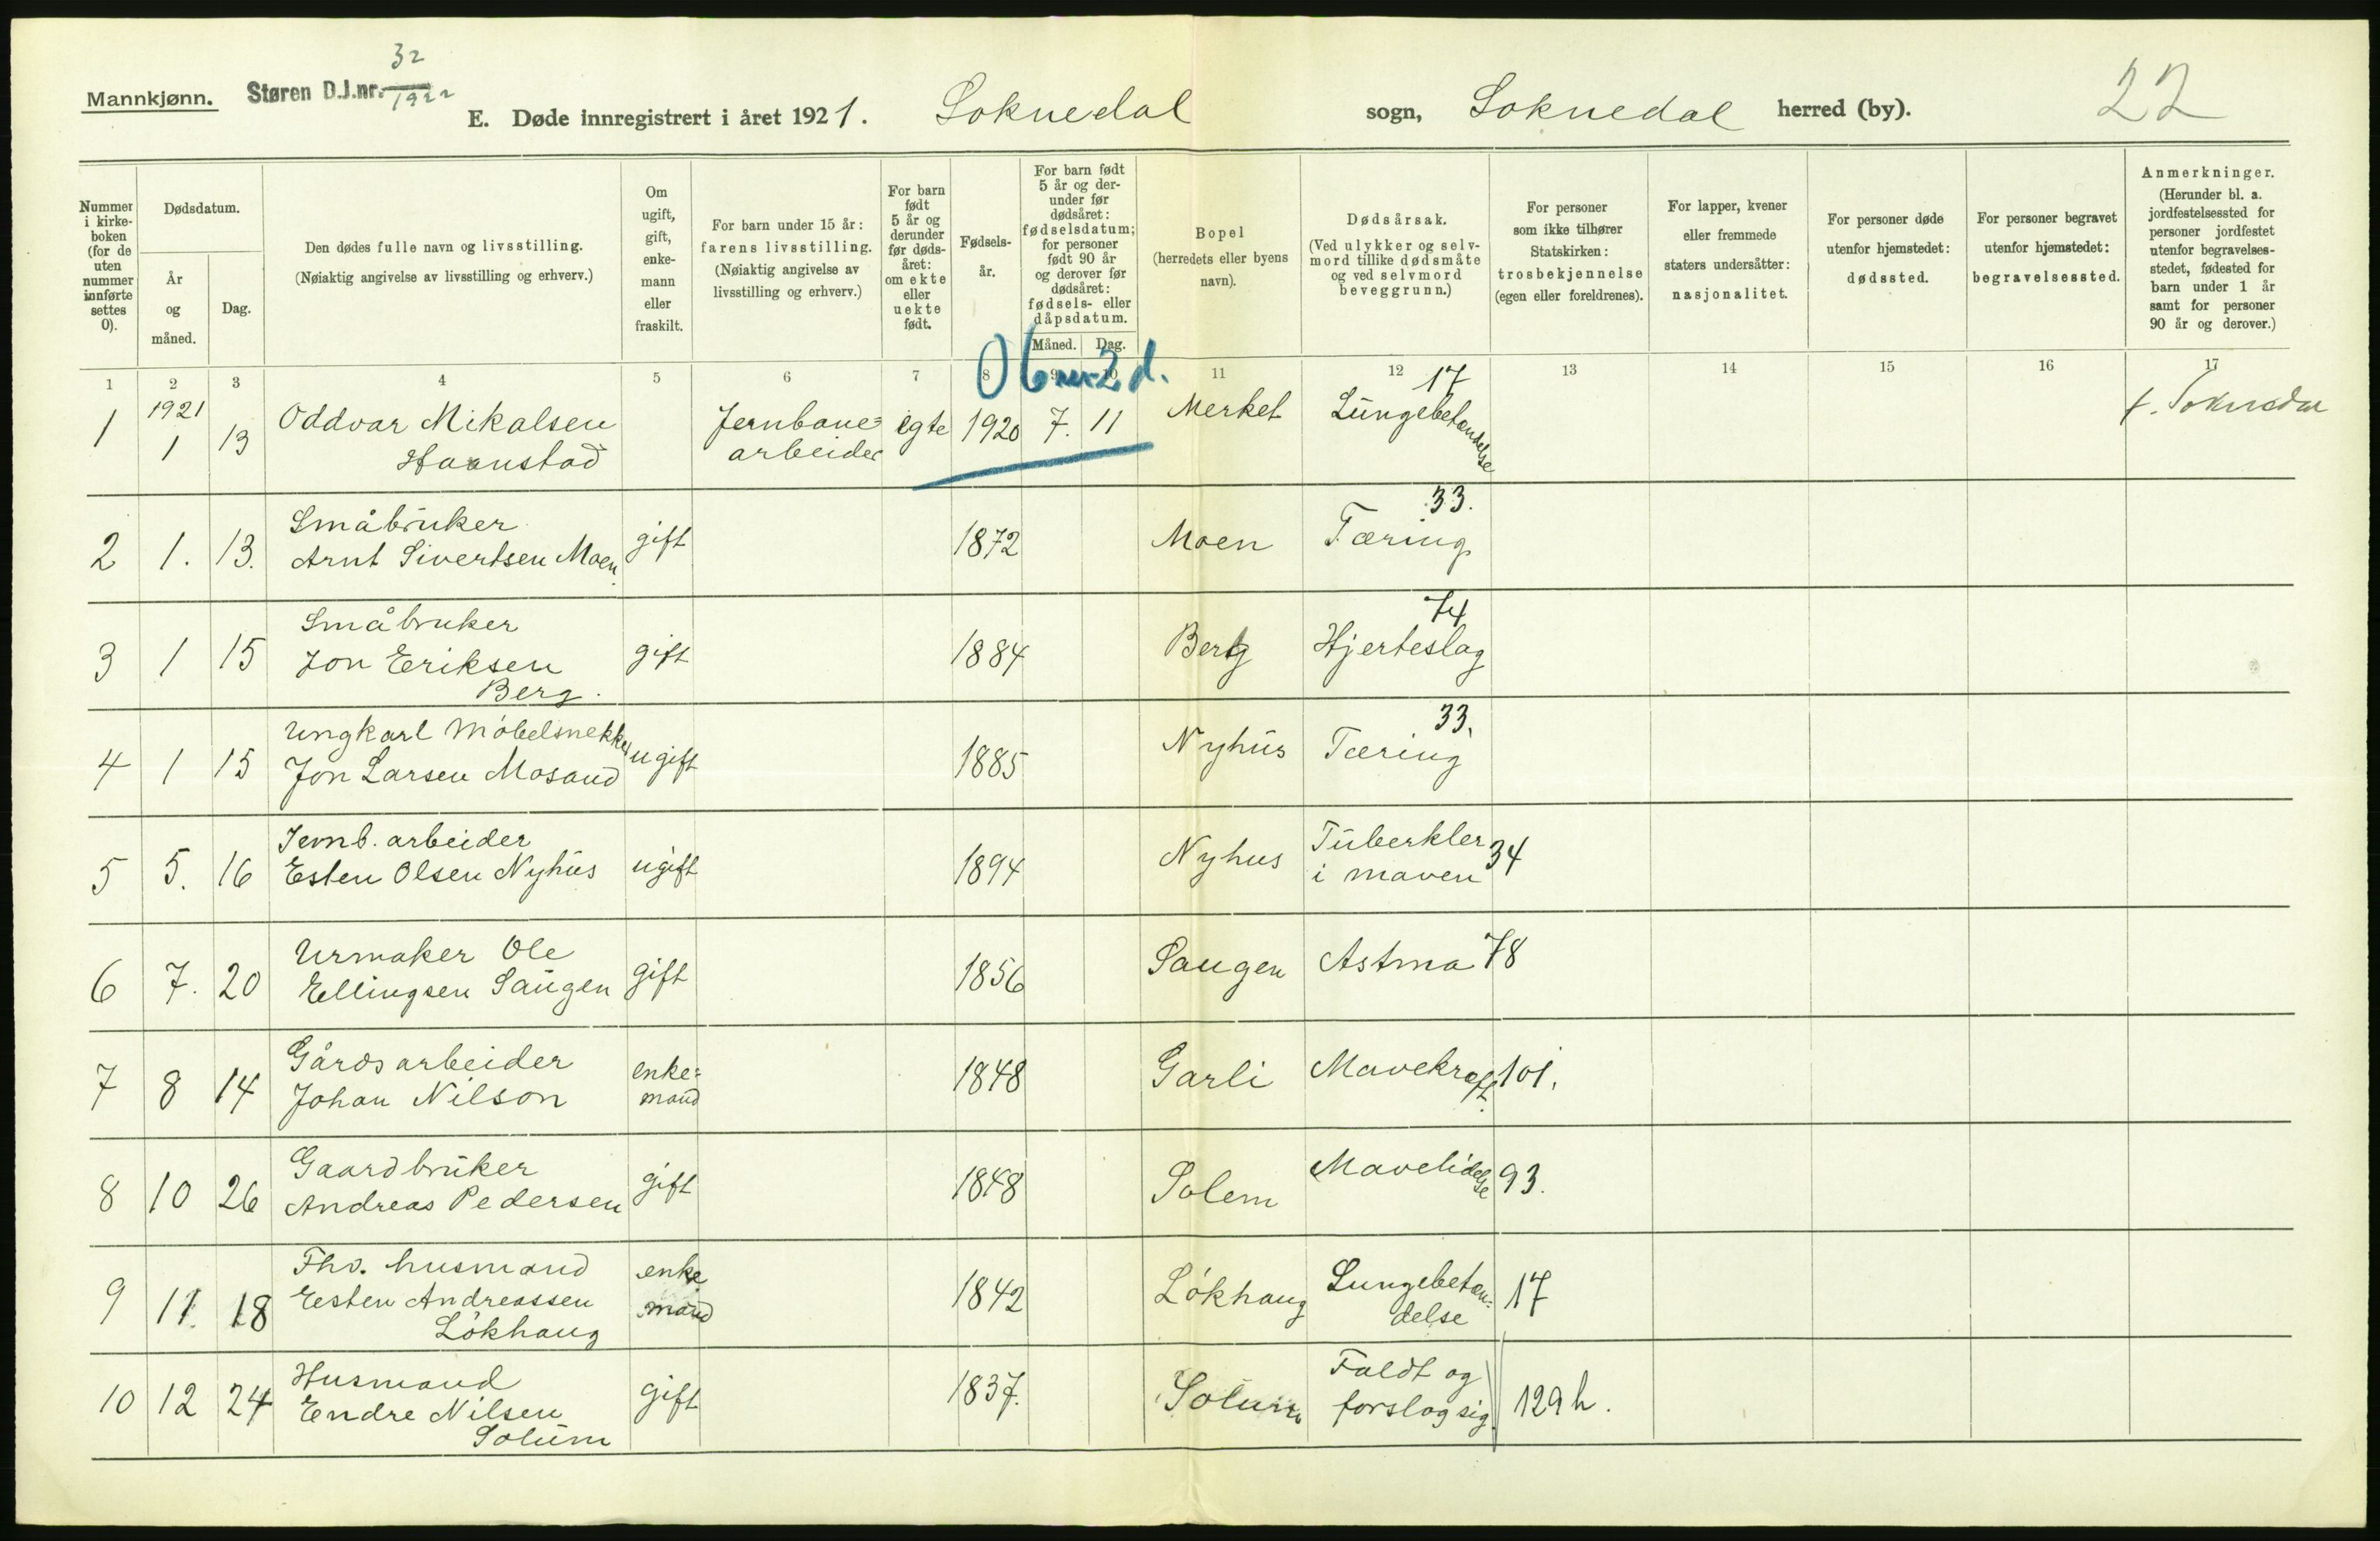 Mannkjønn. Støren D.J.nr. 32/1922
E. Døde innregistrert i året 1921. Soknedal sogn, Soknedal herred (by). 22
Nummer i kirkeboken (for de uten nummer innførte settes 0).
Dødsdatum.
År og måned.
Dag.
Den dødes fulle navn og livsstilling.
(Nøiaktig angivelse av livsstilling og erhverv.)
Om ugift, gift, enkemann eller fraskilt.
For barn under 15 år: farens livsstilling.
(Nøiaktig angivelse av livsstilling og erhverv.)
For barn født 5 år og derunder før dødsåret: om ekte eller uekte født.
Fødselsår.
For barn født 5 år og derunder før dødsåret: fødselsdatum; for personer født 90 år og derover før dødsåret: fødsels- eller dåpsdatum.
Måned. Dag.
Bopel
(herredets eller byens navn).
Dødsårsak.
(Ved ulykker og selvmord tillike dødsmåte og ved selvmord beveggrunn.)
For personer som ikke tilhører Statskirken: trosbekjennelse (egen eller foreldrenes).
For lapper, kvener eller fremmede staters undersåtter: nasjonalitet.
For personer døde utenfor hjemstedet: dødssted.
For personer begravet utenfor hjemstedet: begravelsessted.
Anmerkninger.
(Herunder bl. a. jordfestelsessted for personer jordfestet utenfor begravelsesstedet, fødested for barn under 1 år samt for personer 90 år og derover.)
1 2 3 4 5 6 7 8 9 10 11 12 13 14 15 16 17
06m2d.
1 1921 1 13 Oddvar Mikalsen Haanstad Jernbane=arbeider egte 1920 7. 11 Merket Lungebetændelse 17 f. Soknedal
2 1. 13. Småbruker Arnt Sivertsen Moen gift 1872 Moen Tæring 33.
3 1 15 Småbruker Jon Eriksen Berg. gift 1884 Berg Hjerteslag 74
4 1 15 Ungkarl Møbelsnekker Jon Larsen Mosand ugift 1885 Nyhus Tæring 33.
5 5. 16 Jernb. arbeider Esten Olsen Nyhus ugift 1894 Nyhus Tuberkler i maven 34
6 7. 20 Urmaker Ole Ellingsen Saugen gift 1856 Saugen Astma 78
7 8 14 Gårdsarbeider Johan Nilson enke=mand 1848 Garli Mavekræft. 101.
8 10 26 Gaardbruker Andreas Pedersen gift 1848 Solem Mavelidelse 93.
9 11. 18 Fhv. husmand Esten Andreassen Løkhaug enkemand 1842 Løkhaug Lungebetæn=delse 17
10 12 24 Husmand Endre Nilsen Solum gift 1837. Solum Faldt og forslog sig. 129 h.